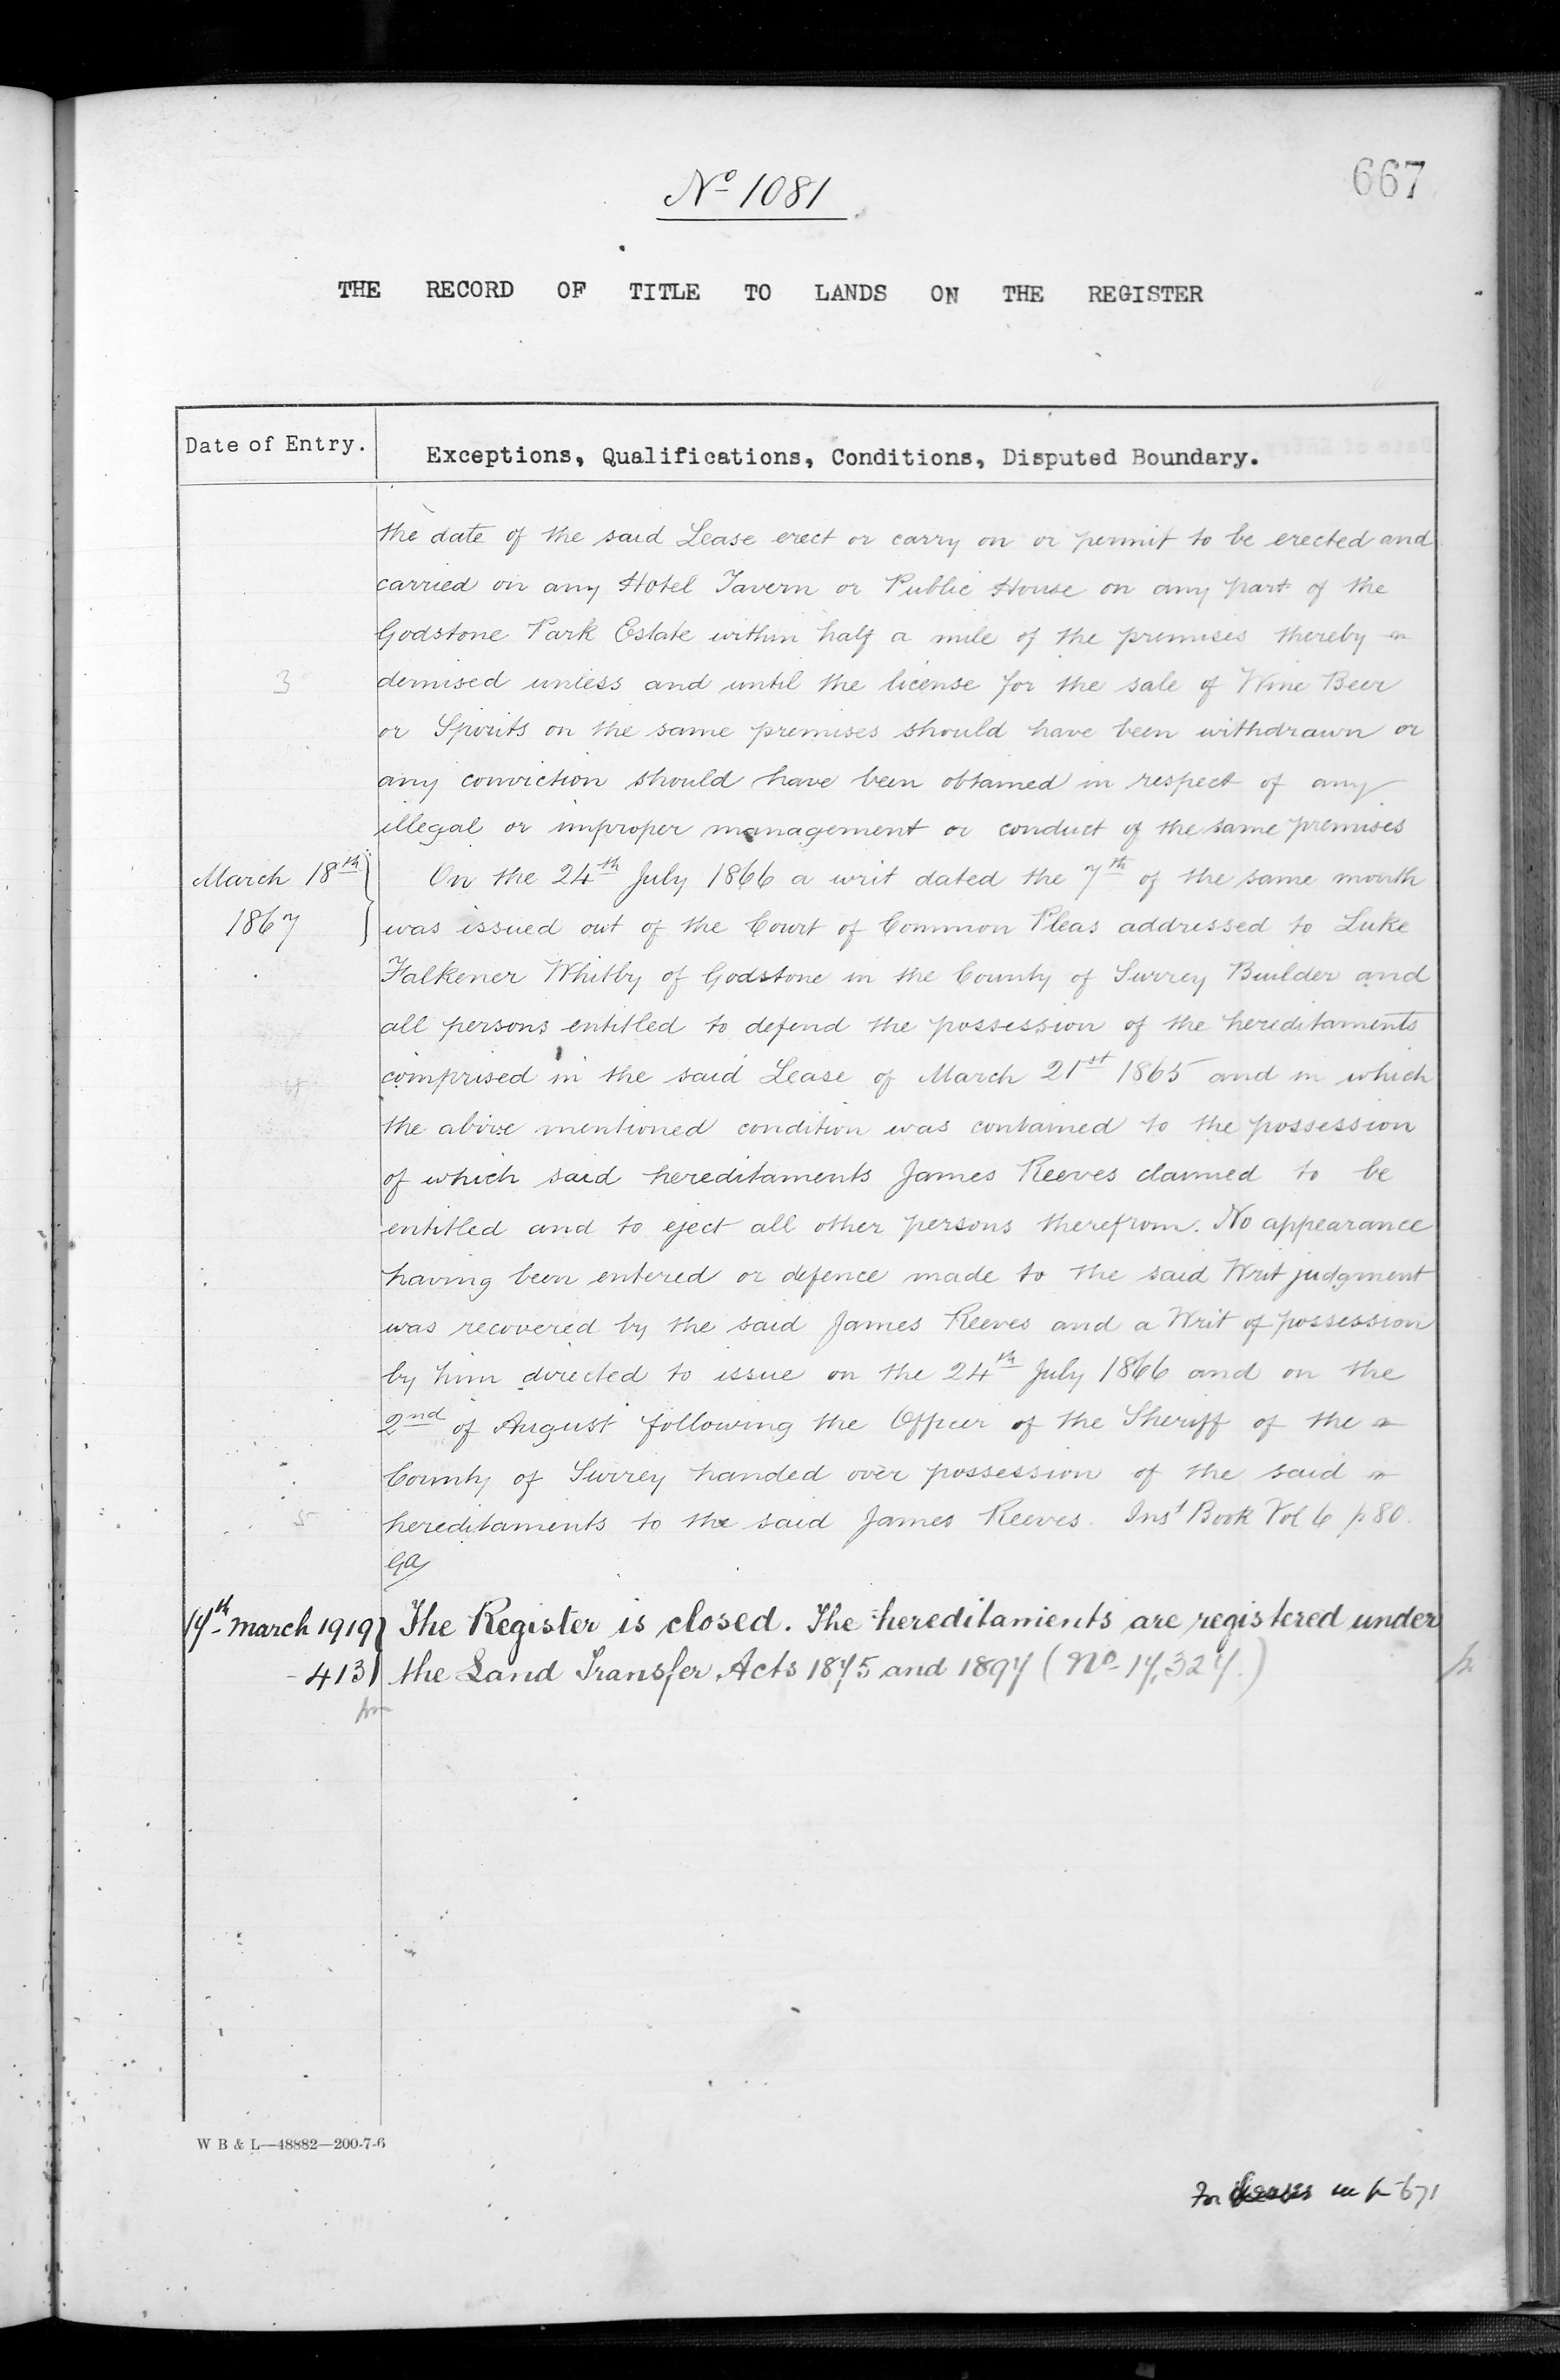 667
Nº 1081
THE RECORD OF TITLE TO LANDS ON THE REGISTER
Date of Entry.
Exceptions, Qualifications, Conditions, Disputed Boundary.
the date of the said Lease erect or carry on or permit to be erected and
carried on any Hotel Tavern or Public House on any part of the
Godstone Park Estate within half a mile of the premises thereby
3
demised unless and until the license for the sale of Wine Beer
or Spirits on the same premises should have been withdrawn or
any conviction should have been obtained in respect of any
illegal or improper management or conduct of the same premises
March 18th
On the 24th July 1866 a writ dated the 7th of the same month
1867
was issued out of the Court of Common Pleas addressed to Luke
Falkener Whitby of Godstone in the County of Surrey Builder and
all persons entitled to defend the possession of the hereditaments
4
comprised in the said Lease of March 21st 1865 and in which
the above mentioned condition was contained to the possession
of which said hereditaments James Reeves claimed to be
entitled and to eject all other persons therefrom. No appearance
having been entered or defence made to the said Writ judgment
was recovered by the said James Reeves and a Writ of possession
by him directed to issue on the 24th July 1866 and on the
2nd of August following the Officer of the Sheriff of the
County of Surrey handed over possession of the said
5
hereditaments to the said James Reeves. Inst Book Vol 6 p 80.
17th March 1919
The Register is closed. The hereditaments are registered under
413
the Land Transfer Acts 1875 and 1897 (No 17,327.)
W B & L—48882—200-7-6
For Leases see p 671